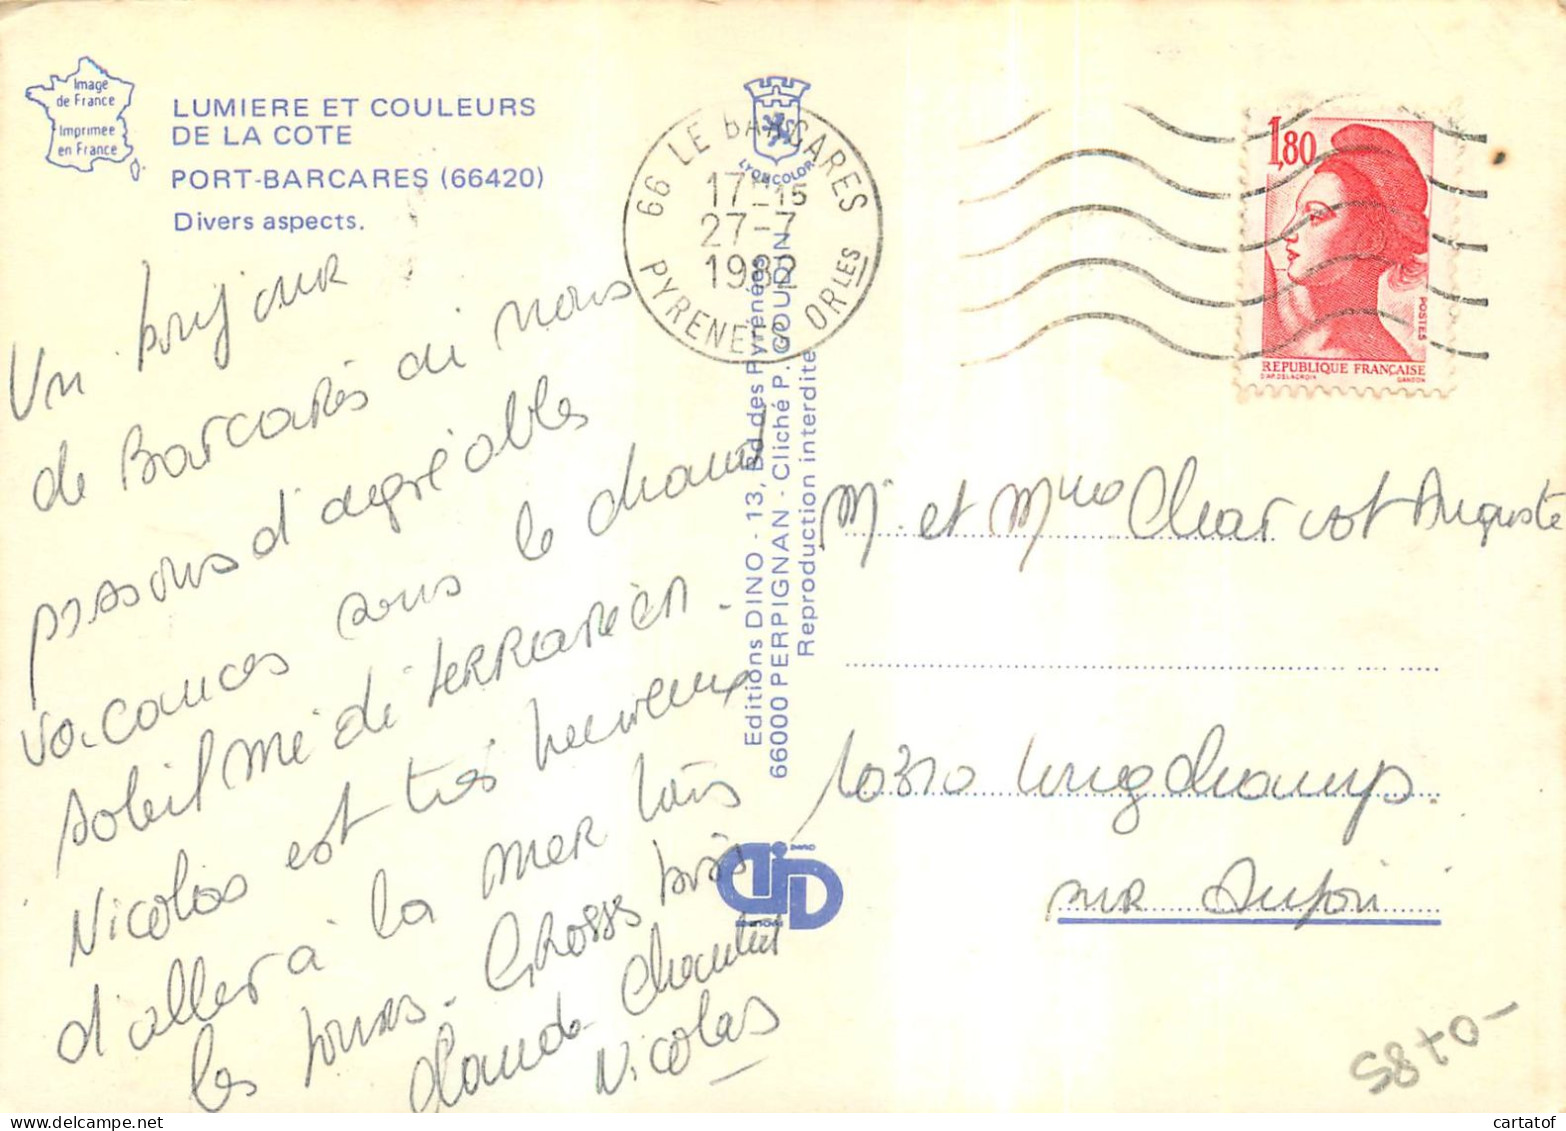 Image
de France
Imprimée
en France
LUMIERE ET COULEURS
DE LA COTE
PORT-BARCARES (66420)
Divers aspects.
LYONCOLOR
66 LE BARCARES
17H15
27-7
1982
PYRENEES ORLES
1,80
POSTES
REPUBLIQUE FRANÇAISE
D'AP. DELACROIX GANDON
Un bonjour
de Barcarès où nous
passons d'agréables
vacances sous le chaud
soleil méditerranéen.
Nicolas est très heureux
d'aller à la mer tous
les jours. Grosses bises
Claude Chantal
Nicolas
Editions DINO - 13, Bd des Pyrénées
66000 PERPIGNAN - Cliché P. GOUDIN
Reproduction interdite
DINO
EDITIONS
Mr et Mme Charvot Auguste
10310 Longchamp
sur Aujon
5870-
cartatof